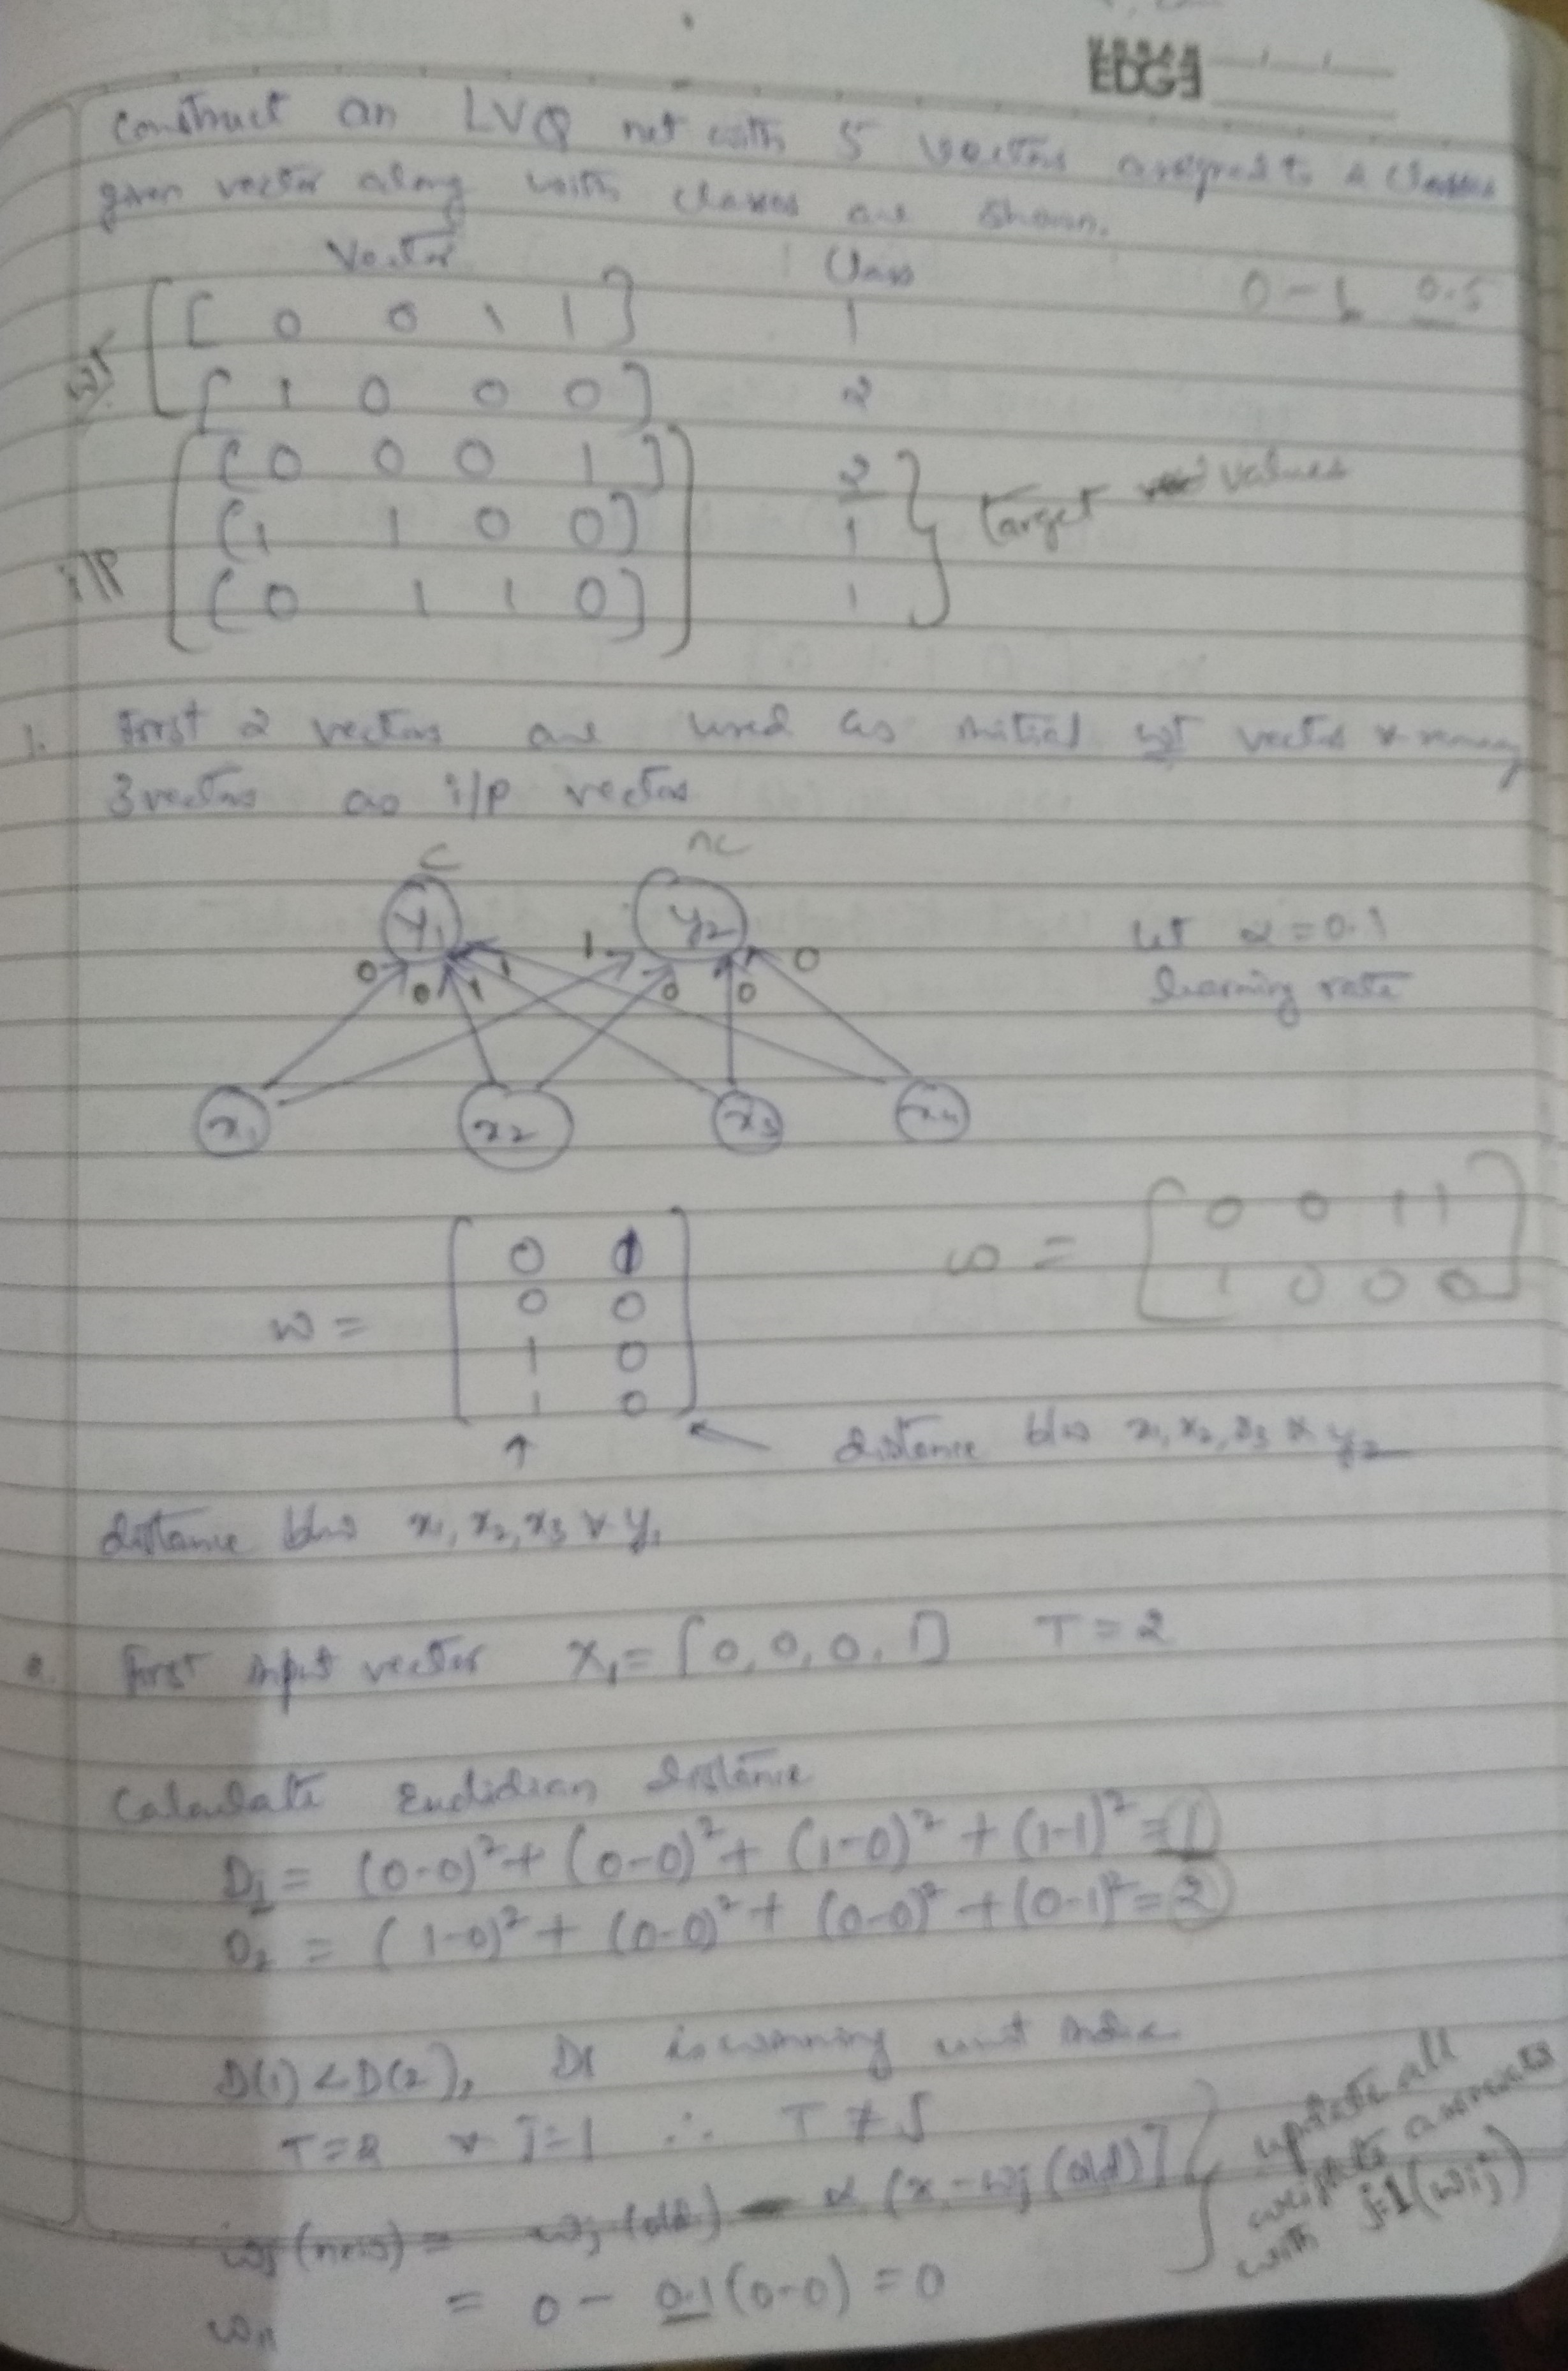 EDGE
Construct an LVQ net with 5 vectors assigned to 2 classes
given vector along with classes are shown.
Vector Class
0-1 0.5
wt [ 0 0 1 1 ] 1
[ 1 0 0 0 ] 2
[ 0 0 0 1 ] 2
i/p [ 1 1 0 0 ] 1 } target values
[ 0 1 1 0 ] 1
1. First 2 vectors are used as initial wt vector &
3 vectors as i/p vector
C nc
y1 y2
let α = 0.1
learning rate
0 0 1 1 1 0 0 0
x1 x2 x3 x4
w = [ 0 1
0 0
1 0
1 0 ]
w = [ 0 0 1 1
1 0 0 0 ]
distance b/w x1, x2, x3 & y2
distance b/w x1, x2, x3 & y1
2. First input vector x1 = [0, 0, 0, 1] T = 2
Calculate Euclidian distance
D1 = (0-0)² + (0-0)² + (1-0)² + (1-1)² = 1
D2 = (1-0)² + (0-0)² + (0-0)² + (0-1)² = 2
D(1) < D(2), D1 is winning unit index
T = 2 & J = 1 ∴ T ≠ J
wj (new) = wj (old) - α [x - wj (old)]
update all
weights
with j=1 (wij)
w11 = 0 - 0.1 (0-0) = 0